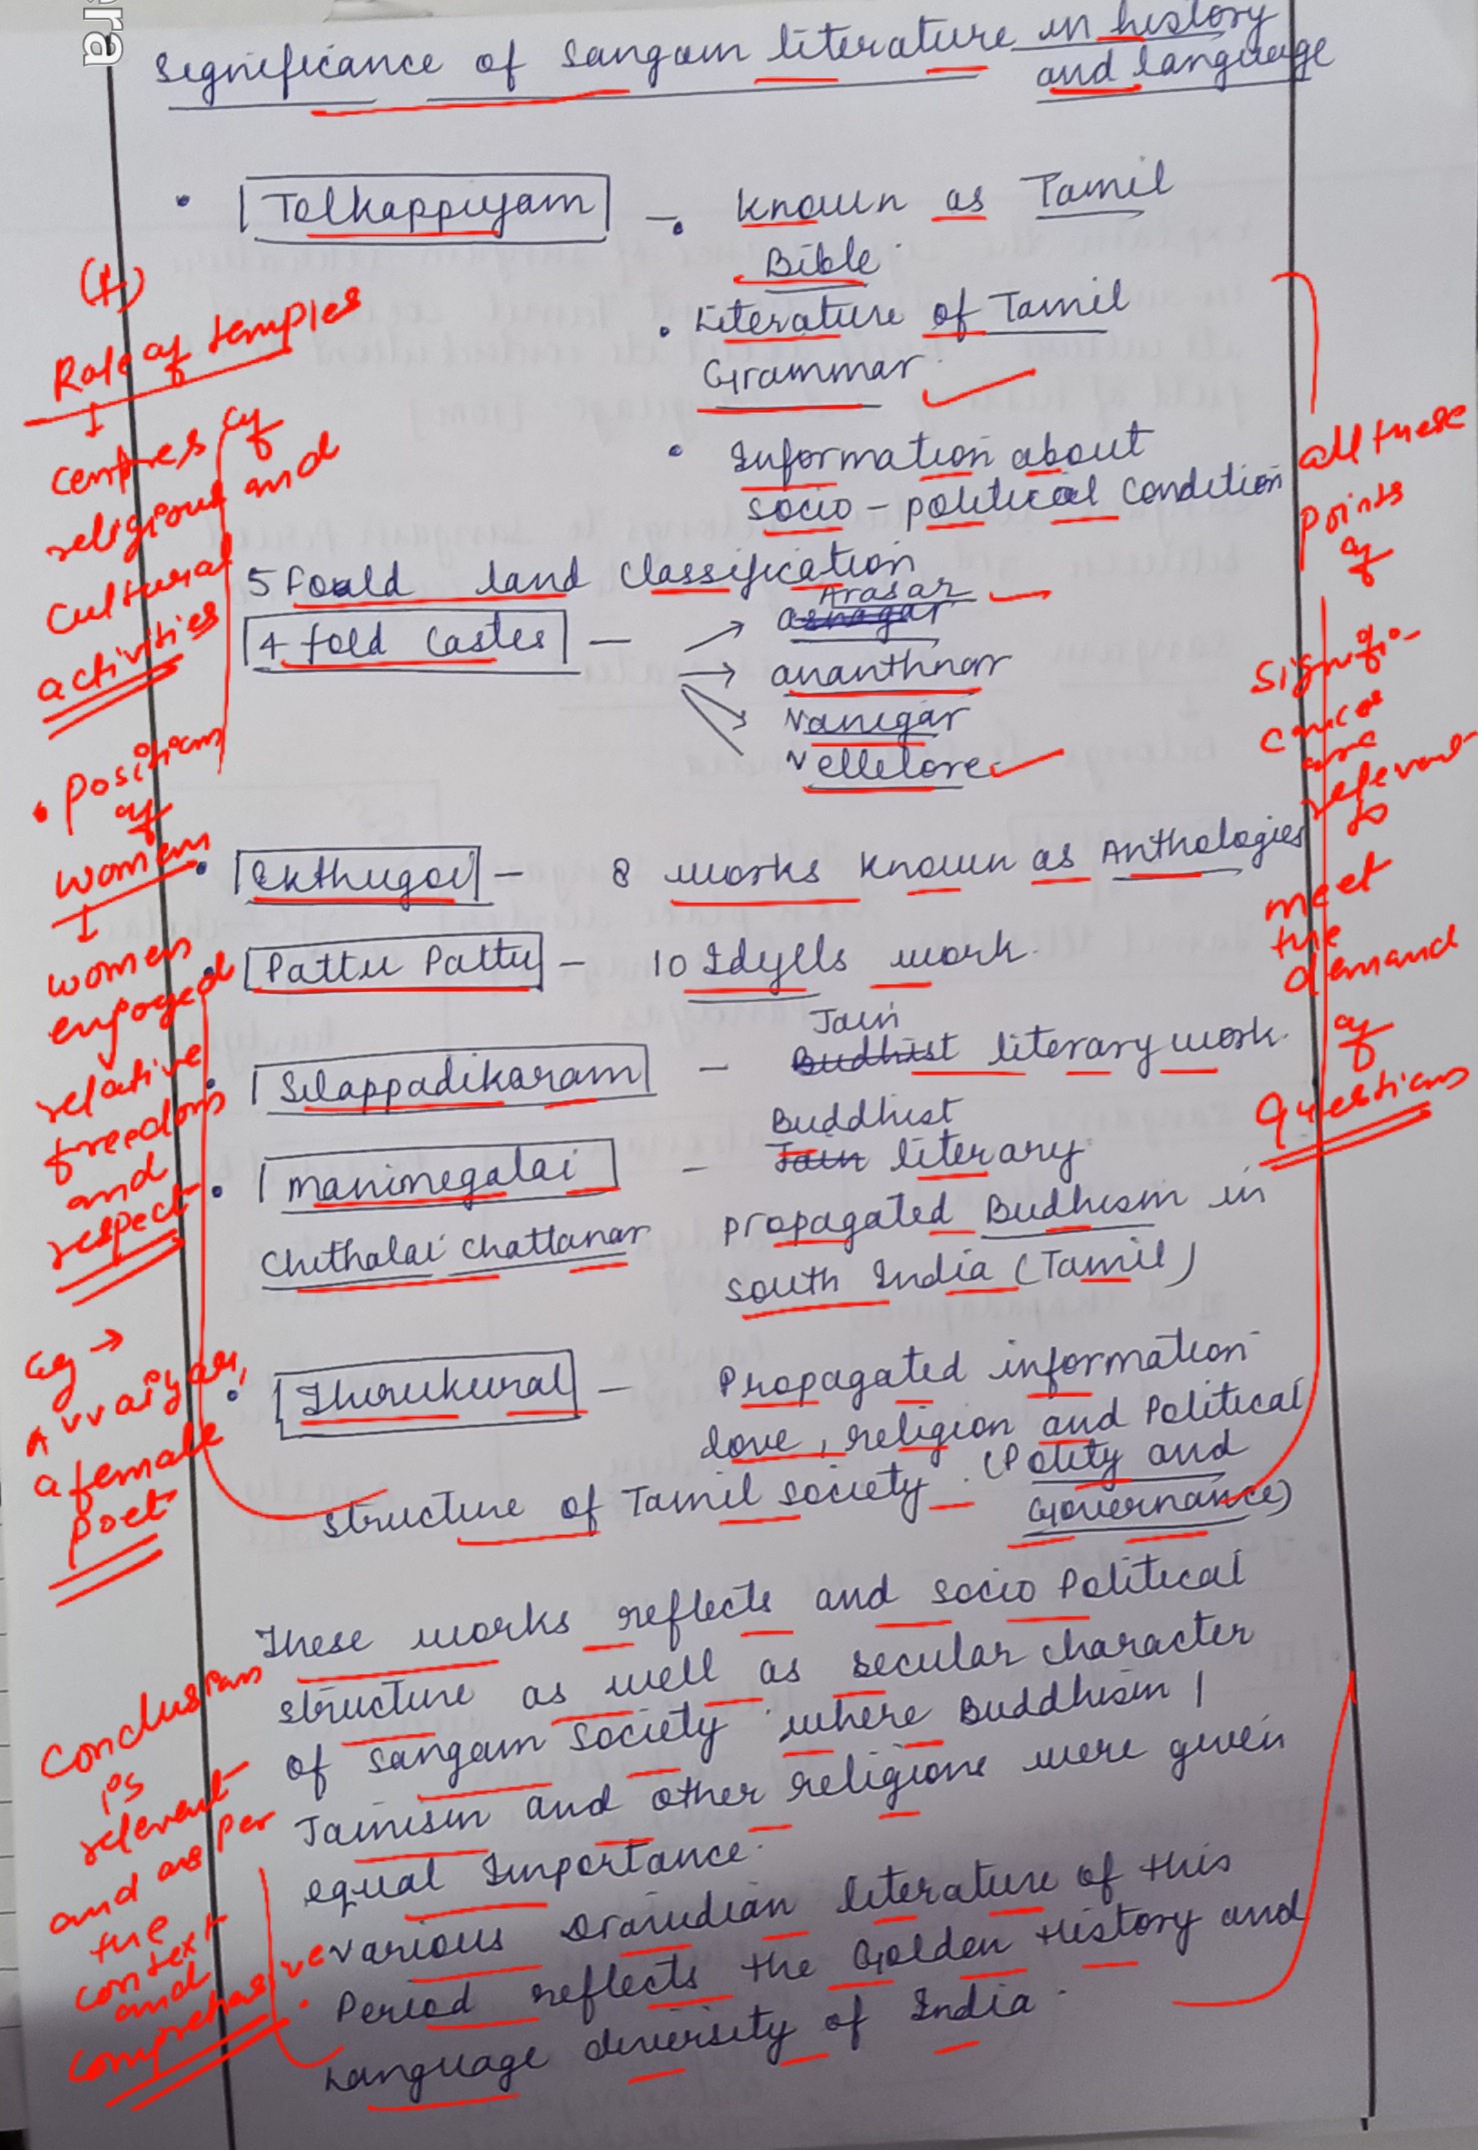 era
Significance of Sangam literature in history
and language
• Tolkappiyam – • Known as Tamil
Bible
• Literature of Tamil
Grammar
• Information about
socio-political condition
5 Foald land classification
4 fold Castes – Arasar
ananthnar
Vanigar
Vellelore
• Ekthugoi – 8 works known as Anthologies
• Pattu Pattu – 10 Idylls work
• Silappadikaram – Jain
Budhist literary work.
• Manimegalai – Buddhist
Jain literary
Chithalai Chattanar propagated Budhism in
South India (Tamil)
• Thirukural – Propagated information
love, religion and Political
structure of Tamil society. (Polity and
Governance)
These works reflects and socio Political
structure as well as secular character
of Sangam Society where Buddhism |
Jainism and other religions were given
equal Importance.
various Dravidian literature of this
Period reflects the Golden History and
Language diversity of India.
(+)
Role of temples
↓
centres of
religious and
cultural
activities
• Positions
of
women
↓
women
enjoyed
relative
freedom
and
respect
eg →
Avvaiyar,
a female
poet
Conclusion
is
relevent
and as per
the
context
and
comprehasive.
all these
points
of
signifi-
cances
are
relevant
to
meet
the
demand
of
Questions